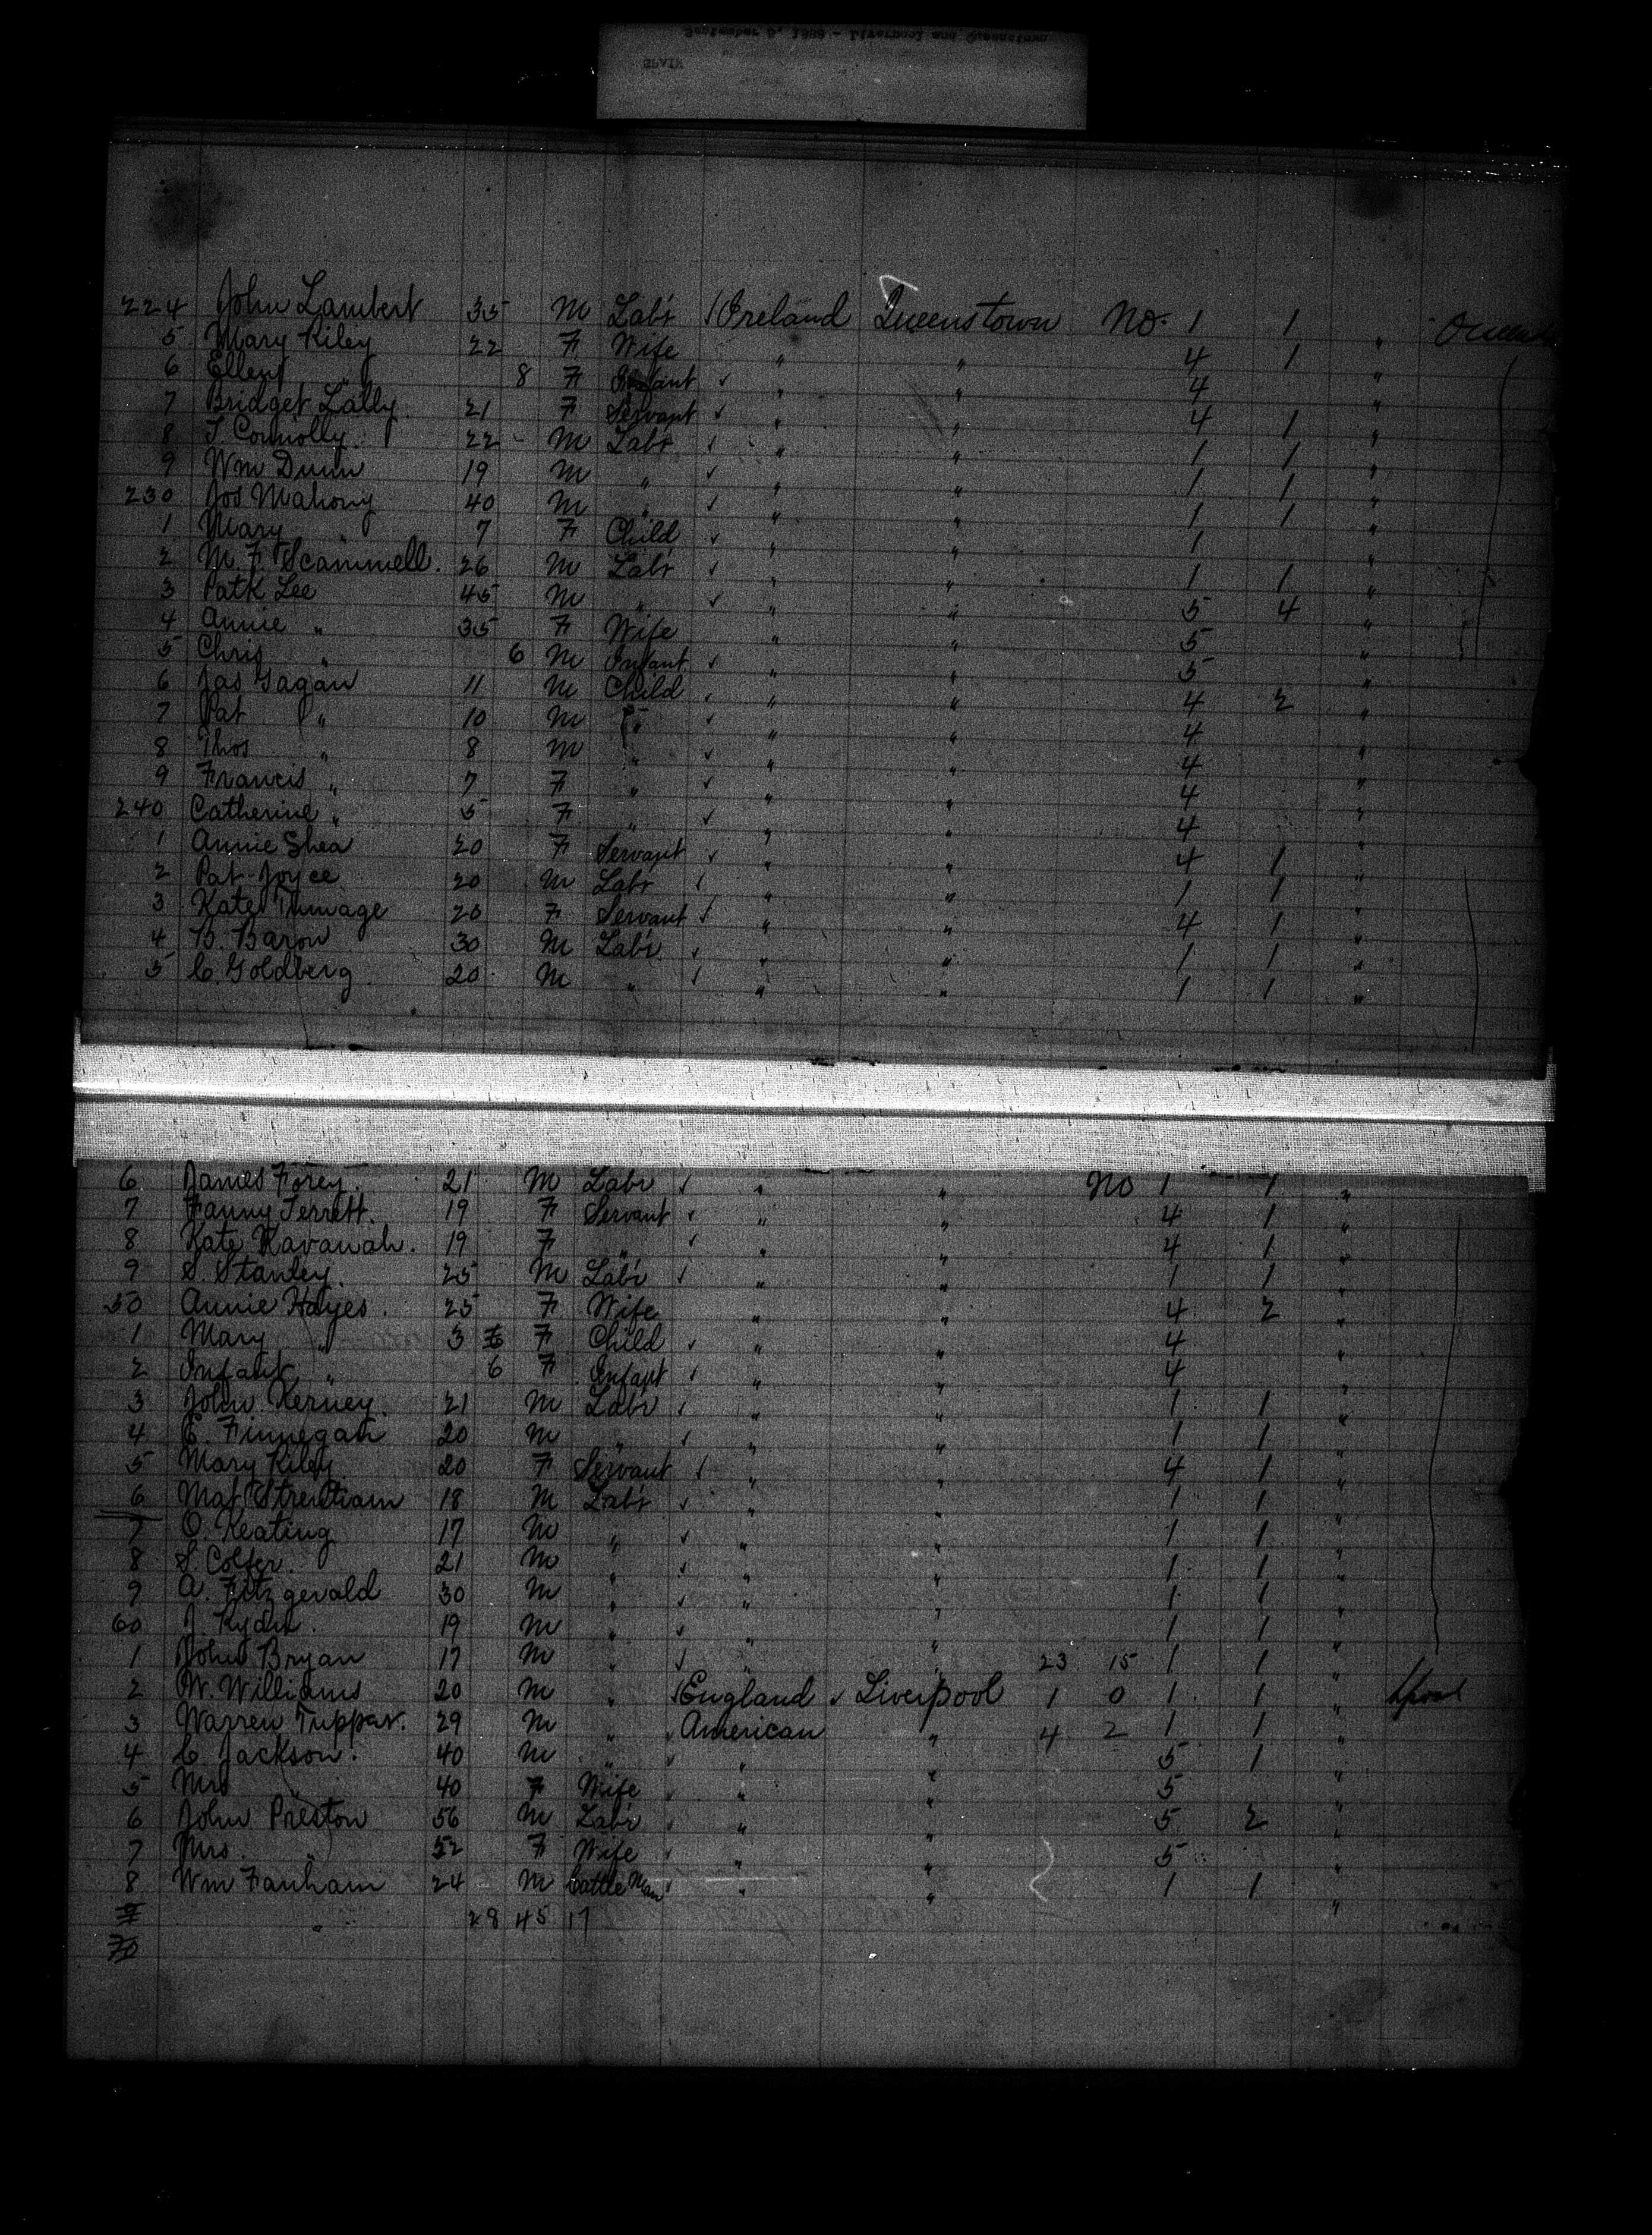 September 5, 1888 - Liverpool and Queenstown
SPAIN
224 John Lambert 35 M Labr Ireland Queenstown No. 1 1 "
5 Mary Riley 22 F Wife " " 4 1 "
6 Ellen " 8 F Infant " " 4 "
7 Bridget Lally 21 F Servant " " 4 1 "
8 T. Connolly 22 M Labr " " 1 1 "
9 Wm Dunn 19 M " " " 1 1 "
230 Jos Mahony 40 M " " " 1 1 "
1 Mary " 7 F Child " " 1
2 M. F. Scammell. 26 M Labr " " 1 1 "
3 Patk Lee 45 M " " " 5 4 "
4 Annie " 35 F Wife " " 5 "
5 Chris " 6 M Infant " " 5 "
6 Jas Gagan 11 M Child " " 4 2 "
7 Pat " 10 M " " " 4
8 Thos " 8 M " " " 4 "
9 Francis " 7 F " " " 4 "
240 Catherine " 5 F " " " 4 "
1 Annie Shea 20 F Servant " " 4 1 "
2 Pat Joyce 20 M Labr " " 1 1 "
3 Kate 20 F Servant " " 4 1 "
4 B. Baron 30 M Labr " " 1 1 "
5 C. Goldberg 20 M " " " 1 1 "
6 James Forey. 21 M Labr " " No 1 1 "
7 Fanny Terrett. 19 F Servant " " 4 1 "
8 Kate Kavanah. 19 F " " " 4 1 "
9 S. Stanley. 25 M Labr " " 1 1 "
50 Annie Hayes. 25 F Wife " " 4 2 "
1 Mary " 3 6 F Child " " 4
2 Infant " 6 F Infant " " 4
3 John Kerney. 21 M Labr " " 1 1 "
4 C. Finnegan 20 M " " " 1 1 "
5 Mary Kiley 20 F Servant " " 4 1 "
6 Mat 18 M Labr " " 1 1 "
7 O. Keating 17 M " " " 1 1 "
8 S. Colfer. 21 M " " " 1 1 "
9 A. Fitzgerald 30 M " " " 1 1 "
60 J. Ryder. 19 M " " " 1 1 "
1 John Bryan 17 M " " " 23 15 1 1 "
2 W. Williams 20 M " England Liverpool 1 0 1 1 " Lpool
3 Warren Tupper. 29 M " American " 4 2 1 1 "
4 C. Jackson. 40 M " " " 5 1 "
5 Mrs " 40 F Wife " " 5 "
6 John Preston 56 M Labr " " 5 2 "
7 Mrs. " 52 F Wife " " 5 "
8 Wm Fanham 24 M Cattle Man " " 1 1 "
9 " 28 45 17
70